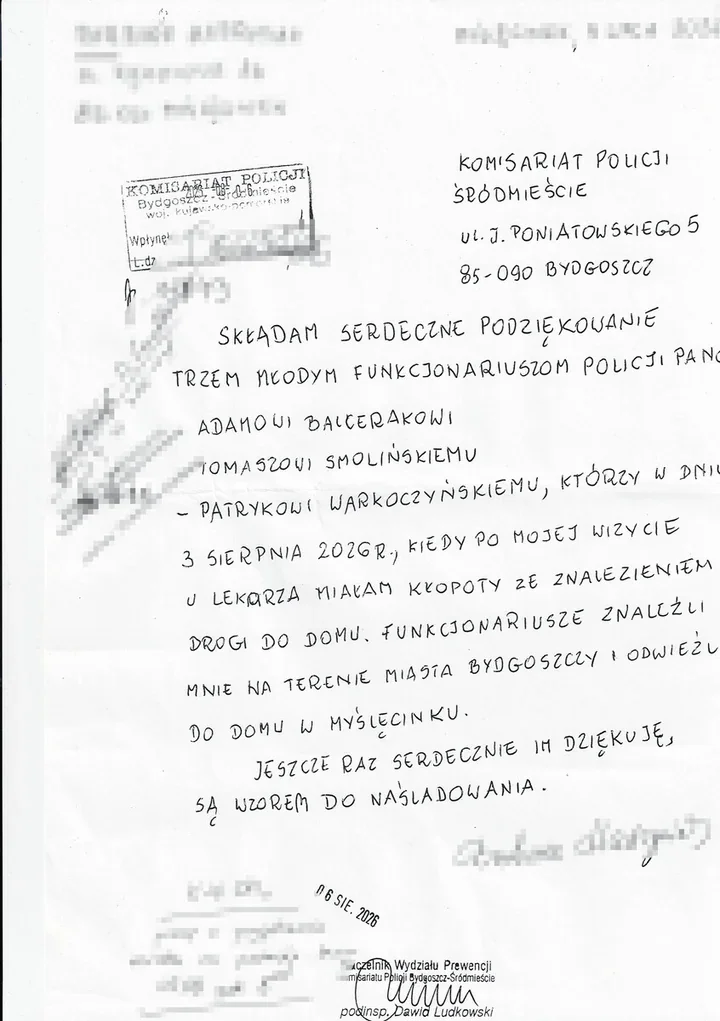 KOMISARIAT POLICJI
ŚRÓDMIEŚCIE
UL. J. PONIATOWSKIEGO 5
85-090 BYDGOSZCZ
KOMISARIAT POLICJI
Bydgoszcz-Śródmieście
woj. kujawsko-pomorskie
Wpłynęł
L.dz
SKŁADAM SERDECZNE PODZIĘKOWANIE
TRZEM MŁODYM FUNKCJONARIUSZOM POLICJI PANO
ADAMOWI BALCERAKOWI
TOMASZOWI SMOLIŃSKIEMU
- PATRYKOWI WARKOCZYŃSKIEMU, KTÓRZY W DNIU
3 SIERPNIA 2026R., KIEDY PO MOJEJ WIZYCIE
U LEKARZA MIAŁAM KŁOPOTY ZE ZNALEZIENIEM
DROGI DO DOMU. FUNKCJONARIUSZE ZNALEŹLI
MNIE NA TERENIE MIASTA BYDGOSZCZY I ODWIEŹL
DO DOMU W MYŚLĘCINKU.
JESZCZE RAZ SERDECZNIE IM DZIĘKUJĘ,
SĄ WZOREM DO NAŚLADOWANIA.
06 SIE. 2026
aczelnik Wydziału Prewencji
misariatu Policji Bydgoszcz-Śródmieście
podinsp. Dawid Ludkowski